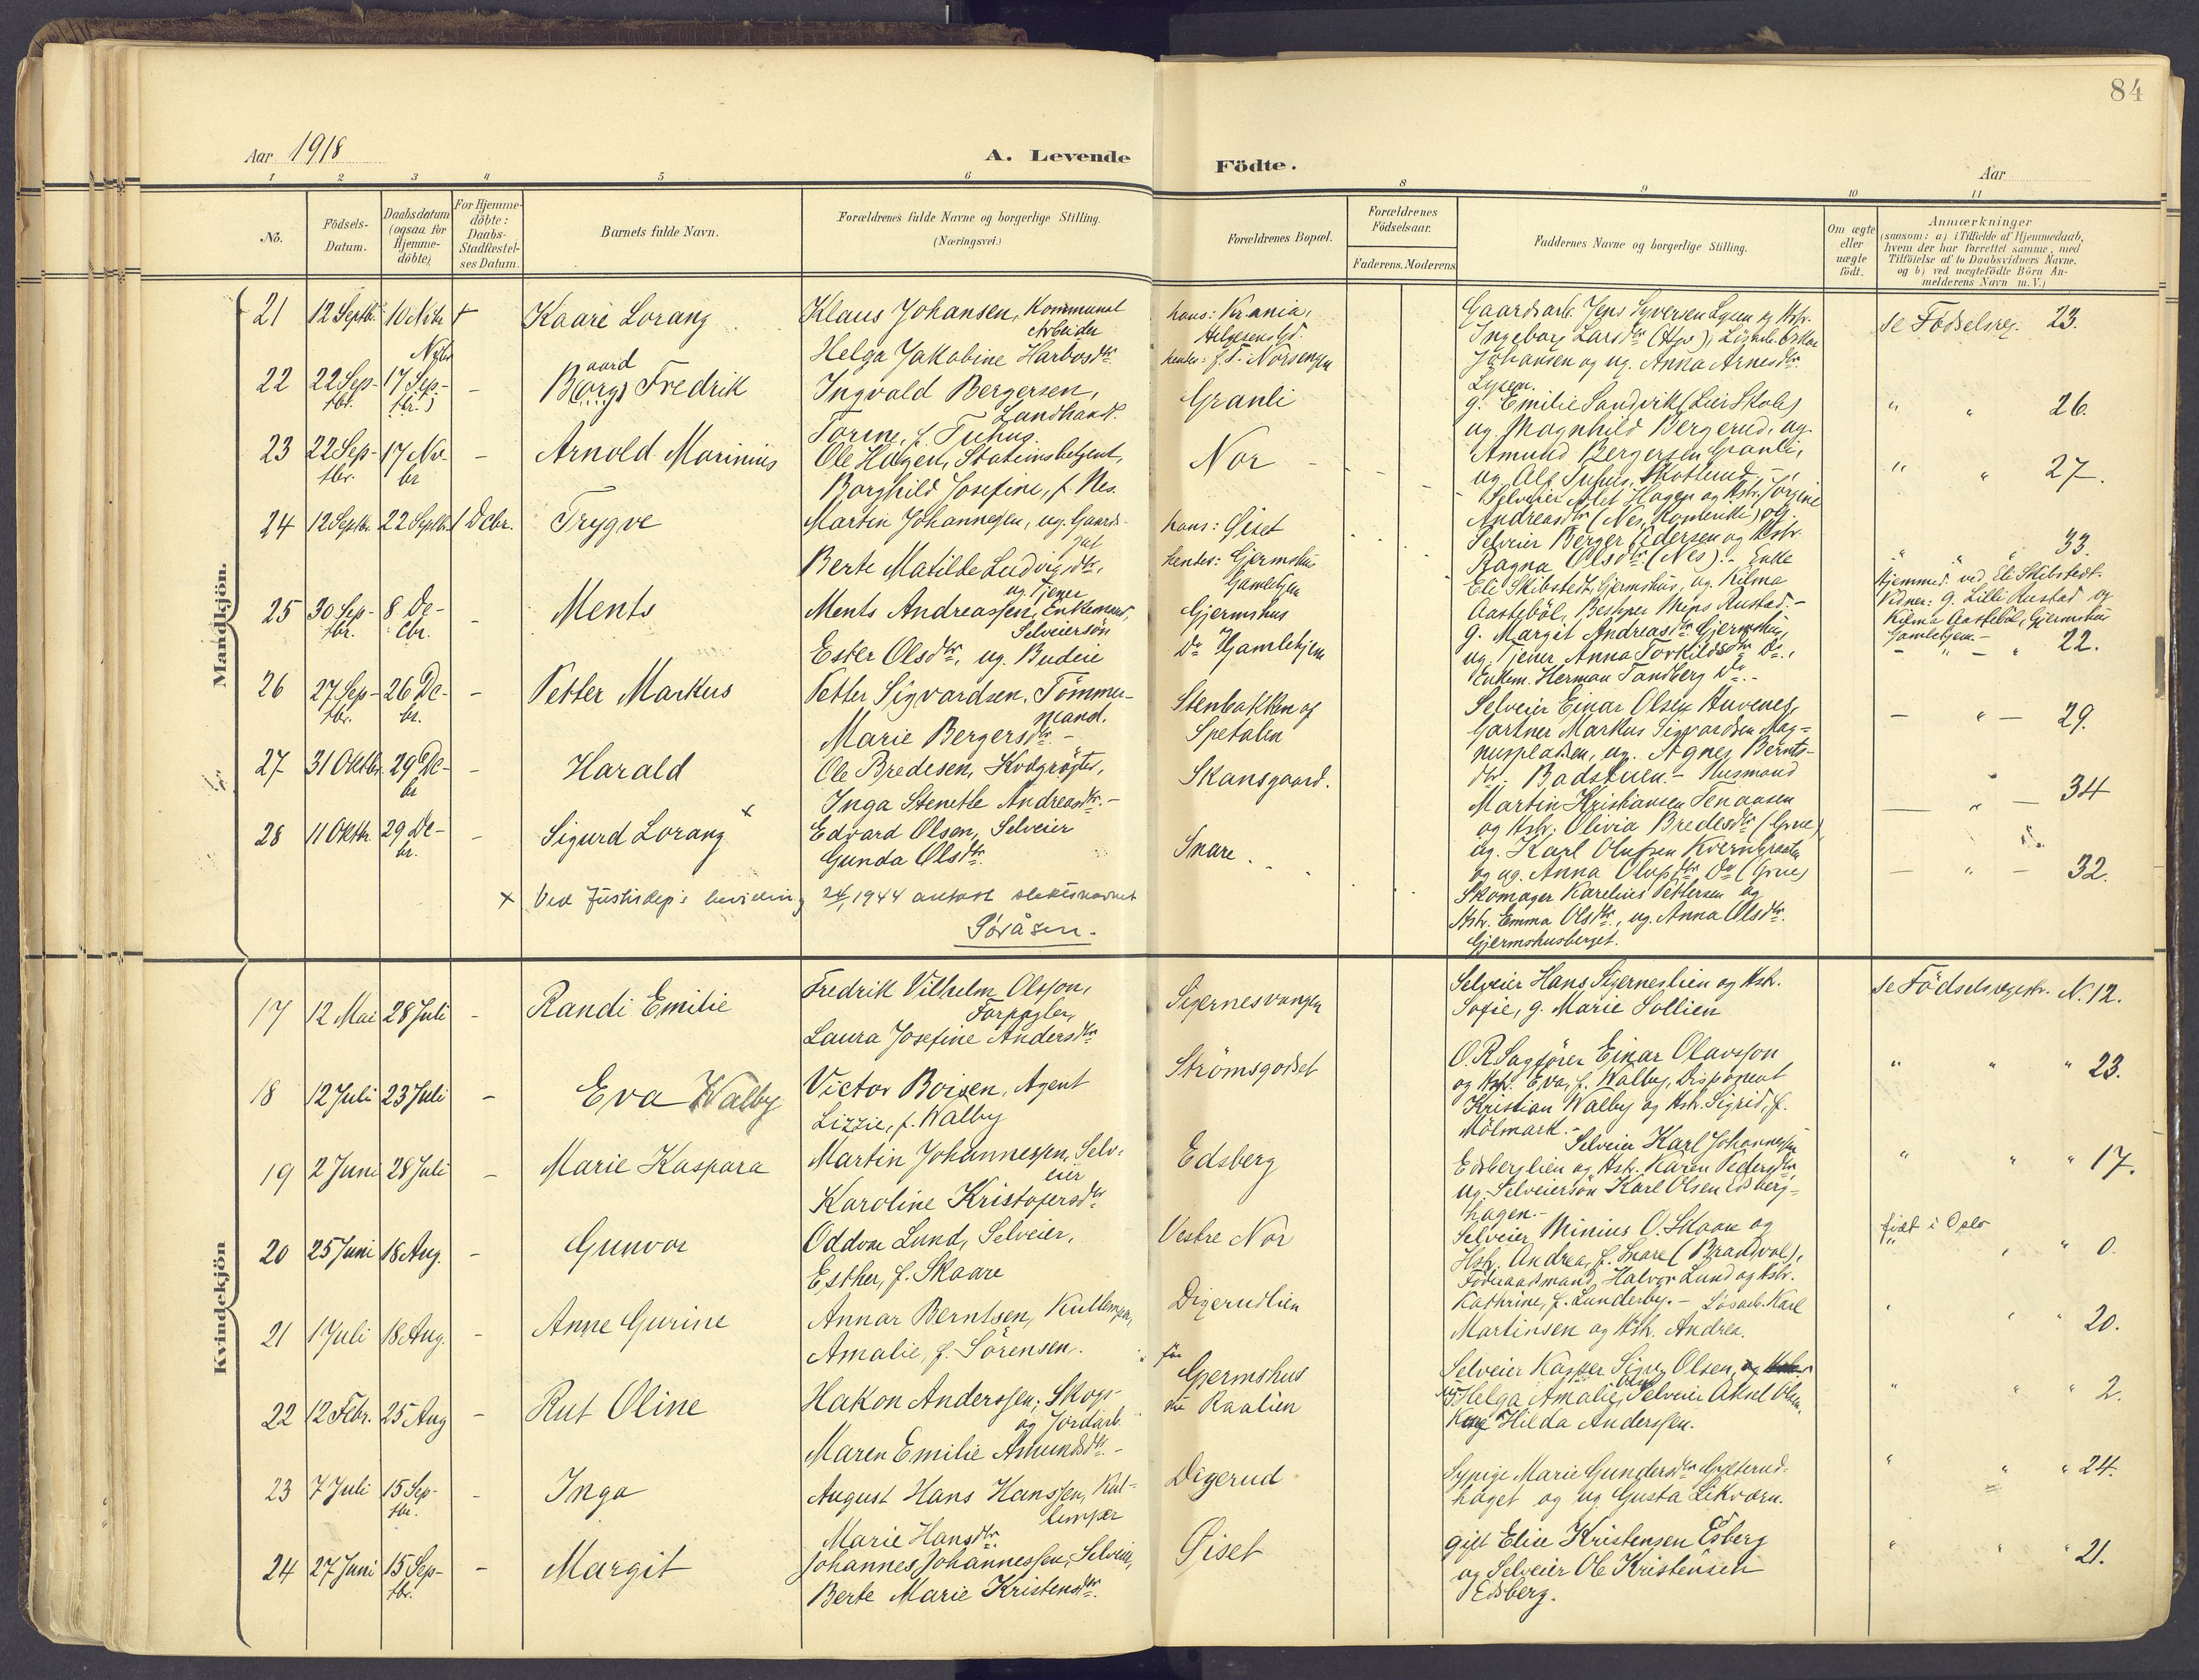 84
Aar 1918
A. Levende
Födte.
Aar
1 2 3 4 5 6 8 9 10 11
No.
Födsels-Datum.
Daabsdatum (ogsaa for Hjemme-döbte)
For Hjemme-döbte: Daabs-Stadfæstel-ses Datum.
Barnets fulde Navn.
Forældrenes fulde Navne og borgerlige Stilling.
(Næringsvei.)
Forældrenes Bopæl.
Forældrenes Födselsaar.
Faderens. Moderens.
Faddernes Navne og borgerlige Stilling.
Om ægte eller uægte födt.
Anmærkninger
(saasom: a) i Tilfælde af Hjemmedaab,
hvem der har forrettet samme, med
Tilföielse af to Daabsvidners Navne.
og b) ved uægtefödte Börn An-
melderens Navn m.V.)
Mandkjön.
21 12 Septbr. 10 Novbr + Kaare Lorang
Klaus Johansen, Kommunal
Arbeider
Helga Jakobine Harbosdtr
hans: Krania,
Helgesensgt.
hendes: f.t. Norsengen
Gaardsarb. Jens Syversen Lysen og Hstr.
Ingeborg Larsdtr, Lösarb. Oskar
Johansen og ug. Anna Arnesdtr.
Lysen.
Se Födselsreg. 23.
22 22 Sep-tbr. 17 Sep-tbr.) Novbr - B(org) aard Fredrik
Ingvald Bergersen,
Landhand.
Torine, f. Tuhus.
Granli
g. Emilie Sandvik (Lier Skole)
ug. Magnhild Bergerud, ug.
Amund Bergersen Granli,
ug. Alf Tuhus, Skotlund
" " 26.
23 22 Sep-tbr. 17 No-br - Arnold Marinius
Ole Hagen, Stationsbetjent,
Borghild Josefine, f. Nes.
Nor
Selveier Hagen og Hstr. Jörgine
Andreasdtr (Nes, Romerike) og
Selveier Berger Pedersen og Hstr.
Ragna Olsdtr (Nes).
" " 27.
24 12 Septbr. 22 Septbr. 1 Dcbr. Trygve
Martin Johannesen, ug. Gaards-
gut
Berte Matilde Ludvigsdtr,
ug. Tjener
hans: Øiset
hendes: Gjermshus
Gamlehjem
Enke
Eli Skibstedt, Gjermshus, ug. Kilma
Aasteböl, Bestyrer Mips Rustad.-
" " " 33.
Hjemmed. ved Eli Skibstedt.
Vidner: g. Lilli Rustad og
Kilma Aasteböl, Gjermshus
Gamlehjem.-
25 30 Sep-tbr. 8 De-cbr. - Ments
Ments Andreassen, Enkemand,
Selveiersön
Ester Olsdtr, ug. Budeie
Gjermshus
og
Do Gamlehjem
g. Margit Andreasdtr Gjermshus,
ug. Tjener Anna Torkildsdtr Do,
Enkem. Herman Tandberg Do.-
- " - " 22.
26 27 Sep-tbr. 26 De-br. - Petter Markus
Petter Sigvardsen, Tömmer-
mand.
Marie Bergersdtr.-
Stenbakken af
Spetalen
Selveier Einar Olsen Huvenes,
Gartner Markus Sigvardsen Mag-
nuspladsen, ug. Agnes Bernts-
dtr. Badstuen.-
- " - 29.
27 31 Oktbr. 29 De-br - Harald
Ole Bredesen, Kvægrögter,
Inga Stenetle Andreasdtr.-
Skansgaard.
Husmand
Martin Kristiansen Tenaasen
og Hstr. Olivia Bredesdtr (Grue)
ug. Karl Olufsen Kvernbraaten
og ug. Anna Olufsdtr Do (Grue)
- " - 34
28 11 Oktbr. 29 De-br. - Sigurd Lorang x
Edvard Olsen, Selveier
Gunda Olsdtr.
Snare.
Skomager Karelius Pettersen og
Hstr. Emma Olsdtr, ug. Anna Olsdtr.
Gjermshusberget.
- " - 32.
x Ved Justisdep's bevilling 24/1 1944 antatt slektsnavnet
Söråsen.
Kvindekjön
17 12 Mai 28 Juli - Randi Emilie
Fredrik Vilhelm Olsson,
Forpagter,
Laura Josefine Andersdtr
Sigernesvangen
Selveier Hans Sigerneslien og Hstr.
Sofie, g. Marie Sollien
Se Födselsregistr. N. 12.
18 12 Juli 23 Juli - Eva Walby
Victor Boisen, Agent
Lizzie, f. Walby
Strömsgodset
O.R.Sagförer Einar Olavsson
og Hstr. Eva, f. Walby, Disponent
Kristian Walby og Hstr. Sigrid, f.
Mölmark.-
" " " 23.
19 2 Juni 28 Juli - Marie Kaspara
Martin Johannessen, Selv-
eier
Karoline Kristofersdtr
Edsberg
Selveier Karl Johannessen
Edsberglien og Hstr. Karen Pedersdtr
ug. Selveiersön Karl Olsen Edsberg-
hagen.-
" " " 17.
20 25 Juni 18 Aug. - Gunvor
Oddvar Lund, Selveier,
Esther, f. Skaare
Vestre Nor
Selveier Minius O. Skaare og
Hstr. Andrea, f. Snare (Brandval),
Föderaadsmand Halvor Lund og Hstr.
Kathrine, f. Lunderby.-
födt i Oslo
" " " 0.
21 1 Juli 18 Aug. - Anne Gurine
Annar Berntsen, Kullemper,
Amalie, f. Sörensen.
Digerudlien
Lösarb. Karl
Martinsen og Hstr. Andrea.
" " " 20.
22 12 Febr. 25 Aug - Rut Oline
Hakon Anderssen, Skogs-
og Jordarb.
Maren Emilie Amundsdtr.-
för
Gjermshus
nu Raalien
Selveier Kasper Sigv. Olsen,
Helga Amalie Olsen, Selveier Aksel Olsen,
Hilda Anderssen.
" " " 2.
23 7 Juli 15 Sep-tbr. - Inga
August Hans Hanssen, Kul-
lemper
Marie Hansdtr.
Digerud
Sypige Marie Gundersdtr
haget og ug. Gusta Likværn.
" " " 24.
24 27 Juni 15 Sep-tbr. - Margit
Johannes Johannessen, Selveier,
Berte Marie Kristensdtr.
Øiset
Gift Elise Kristensen Esberg
og Selveier Ole Kristensen
Edsberg.
" " " 21.